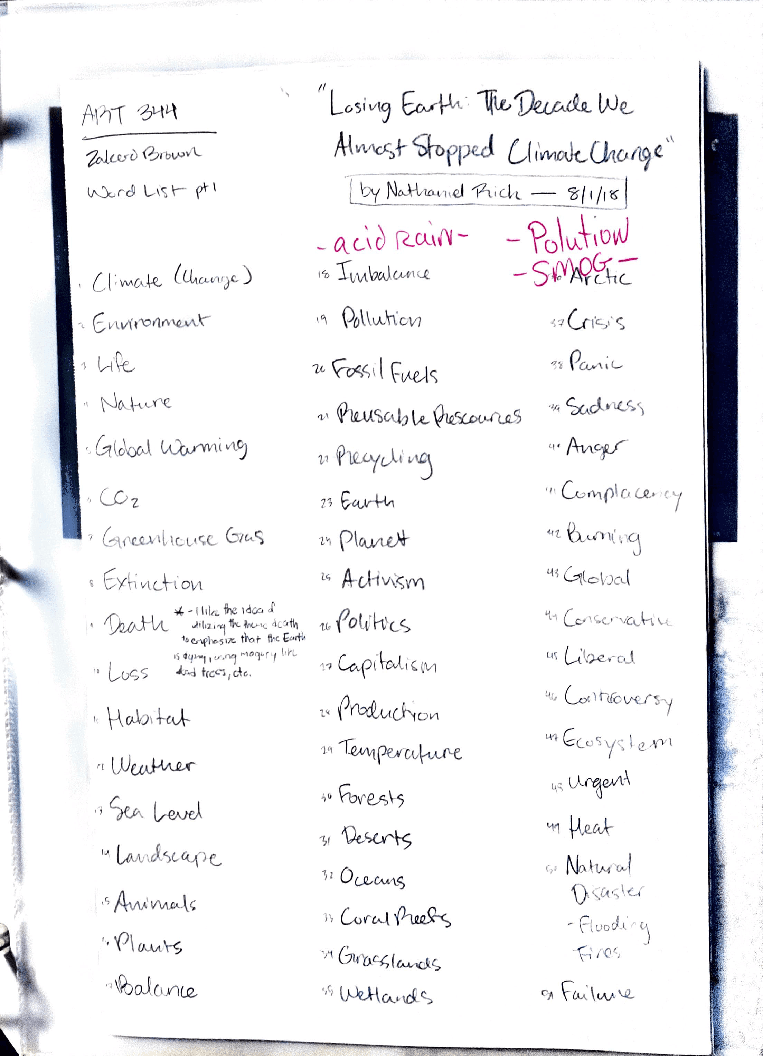 ART 344
Brown
Word List pt1
"Losing Earth: The Decade We
Almost Stopped Climate Change"
by Nathaniel Rich — 8/1/18
- acid rain -
- Polution
- SMOG -
1 Climate (Change)
2 Environment
3 Life
4 Nature
5 Global Warming
6 CO2
7 Greenhouse Gas
8 Extinction
9 Death
* - I like the idea of
utilizing the theme death
to emphasize that the Earth
is dying, using imagery like
dead trees, etc.
10 Loss
11 Habitat
12 Weather
13 Sea Level
14 Landscape
15 Animals
16 Plants
17 Balance
18 Imbalance
19 Pollution
20 Fossil Fuels
21 Reusable Rescources
22 Recycling
23 Earth
24 Planet
25 Activism
26 Politics
27 Capitalism
28 Production
29 Temperature
30 Forests
31 Deserts
32 Oceans
33 Coral Reefs
34 Grasslands
35 Wetlands
36 Arctic
37 Crisis
38 Panic
39 Sadness
40 Anger
41 Complacency
42 Burning
43 Global
44 Conservative
45 Liberal
46 Controversy
47 Ecosystem
48 Urgent
49 Heat
50 Natural
Disaster
- Flooding
- Fires
51 Failure